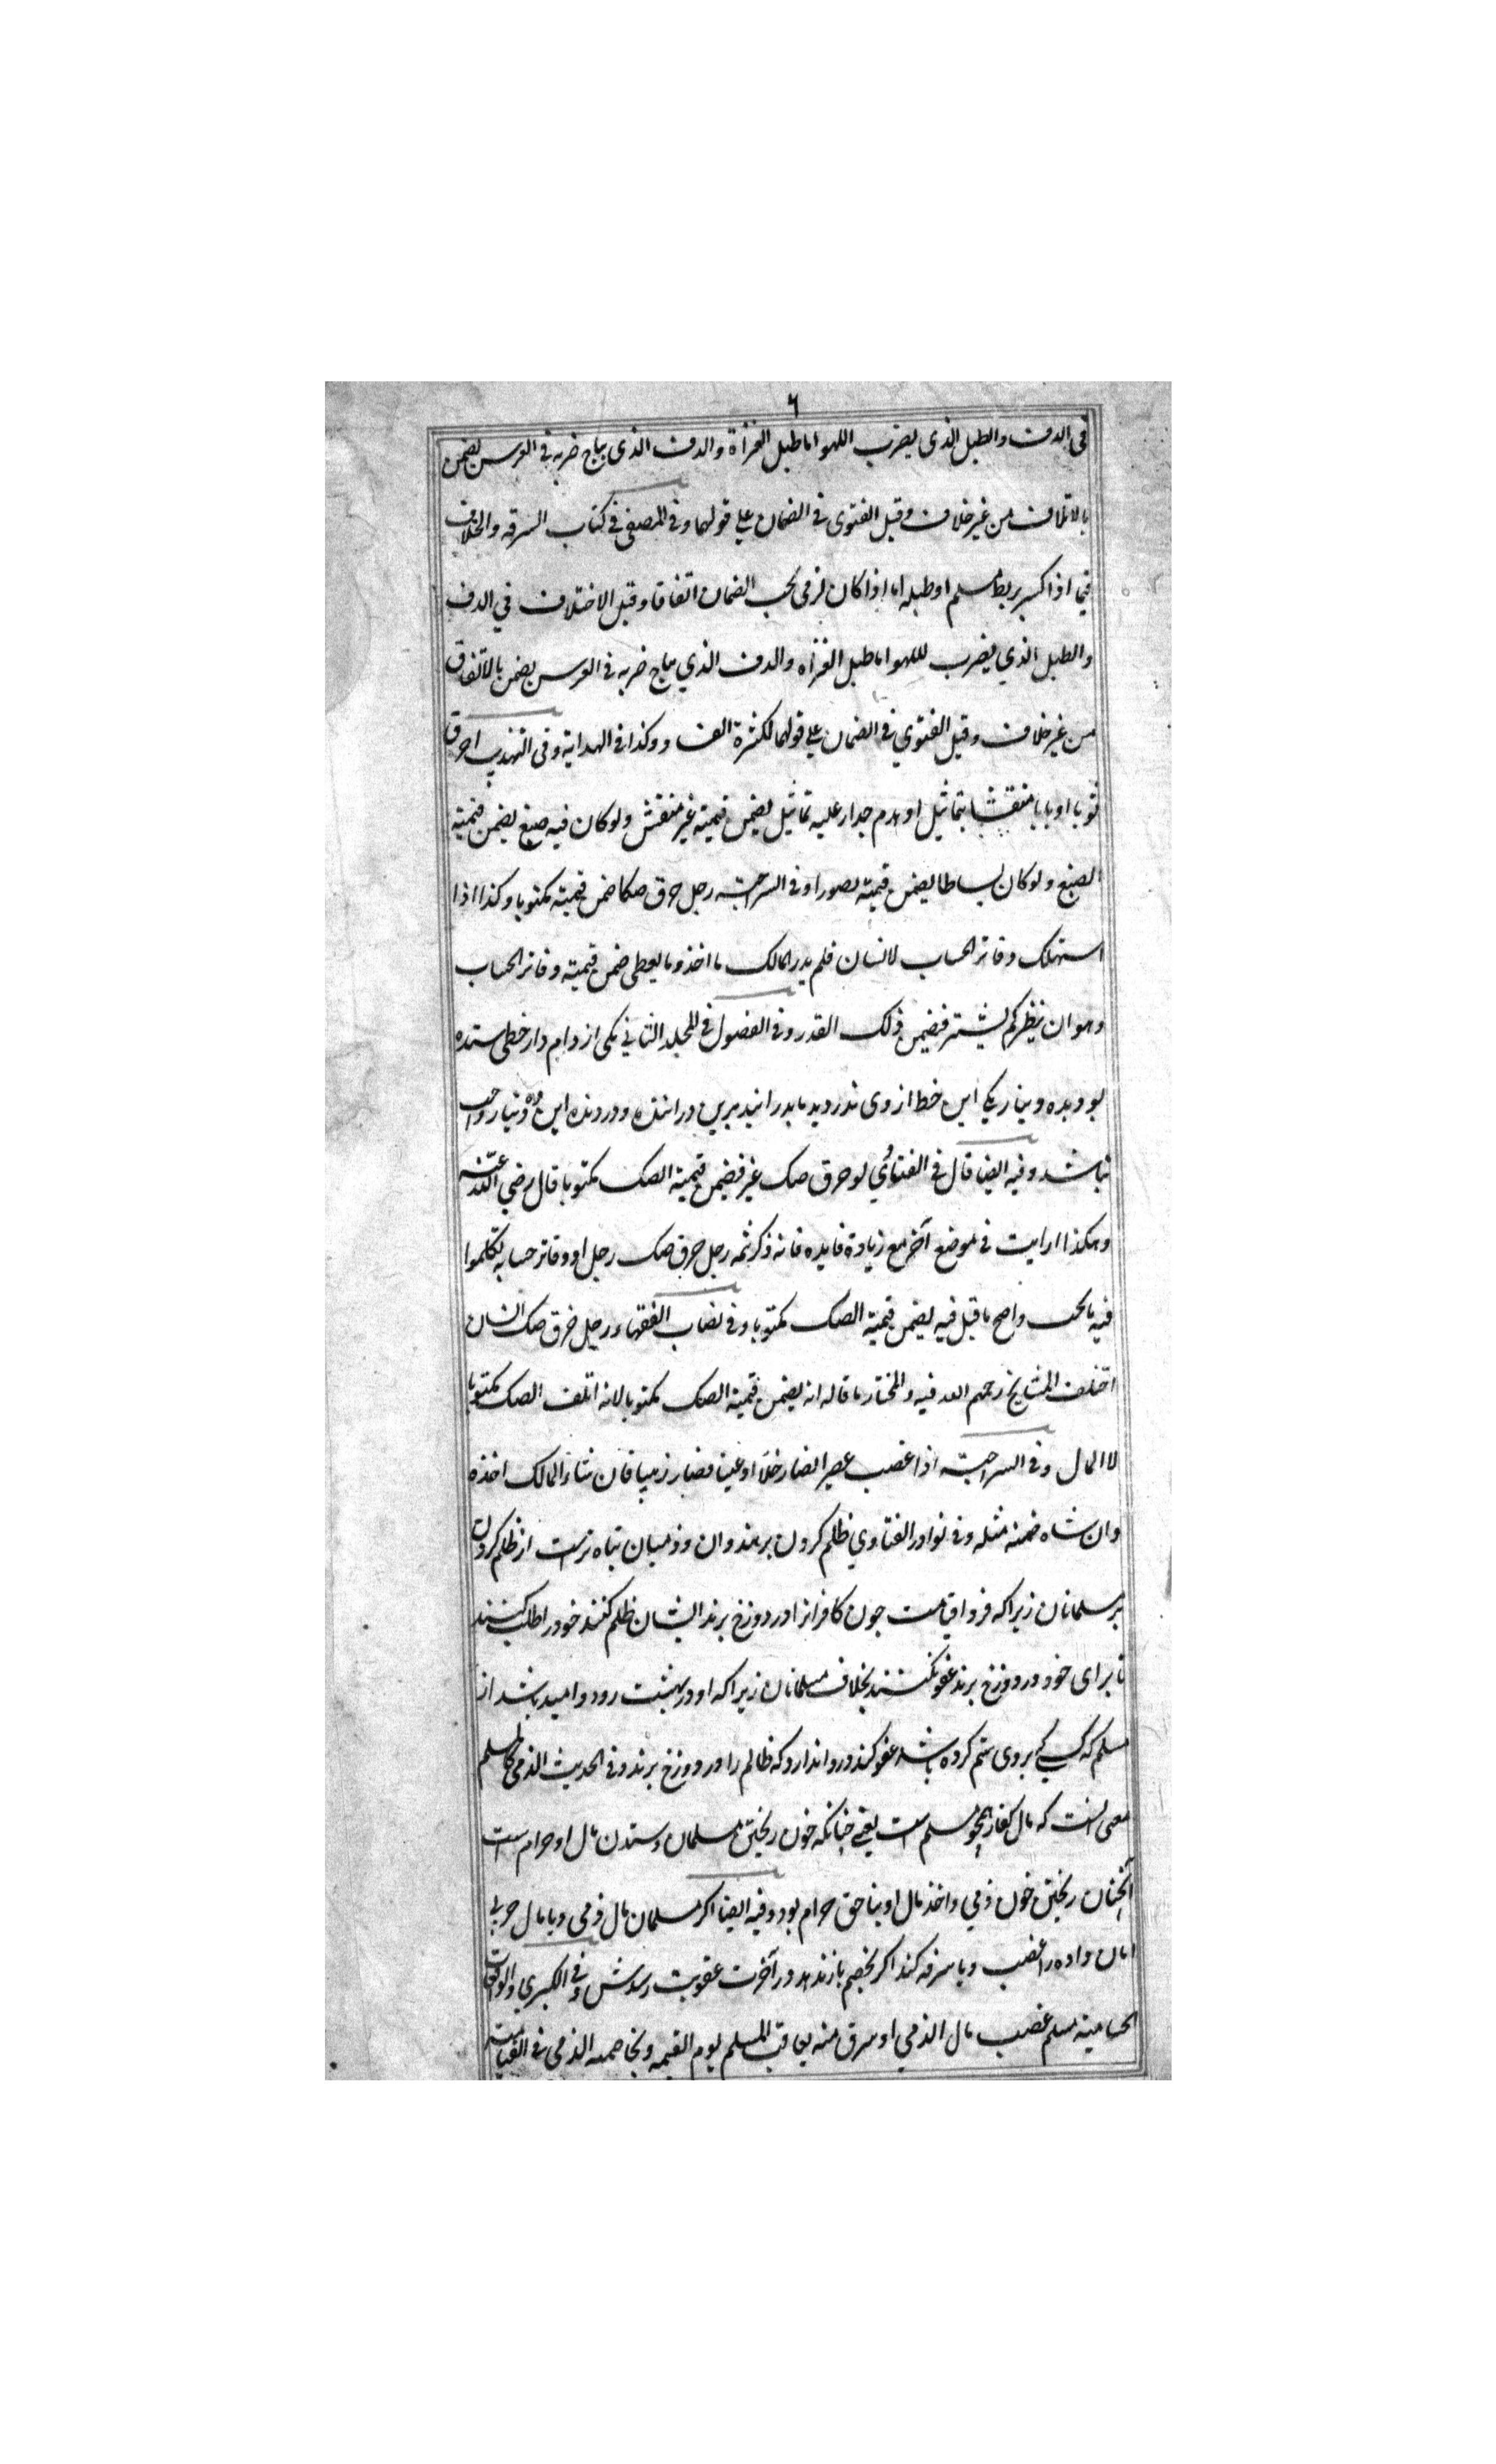 ٦
فی الدف والطبل الذی یضرب اللهو اما طبل الغزاة والدف الذی یباح ضربه فی العرس یضمن
بالاتلاف من غیر خلاف وقیل الفتوی فی الضمان علی قولهما وفی المصفی فی کتاب السرقه والخلاف
فیما اذا کسر بربط مسلم او طبله اما اذا کان لذمی یجب الضمان اتفاقا وقیل الاختلاف فی الدف
والطبل الذی یضرب للهو اما طبل الغزاه والدف الذی یباح ضربه فی العرس یضمن بالاتفاق
من غیر خلاف وقیل الفتوی فی الضمان علی قولهما لکثرة الفساد وکذا فی الهدایة وفی التهذیب احرق
ثوبا او بابا منقشا بتماثیل او هدم جدار علیه تماثیل یضمن قیمته غیر منقش ولو کان فیه صبغ یضمن قیمته
الصبغ ولو کان بساطا یضمن قیمته مصورا وفی السراجیة رجل حرق صکا ضمن قیمته مکتوبا وکذا اذا
استهلک دفاتر الحساب لانسان فلم یدر المالک ما اخذ وما یعطی ضمن قیمته دفاتر الحساب
وهو ان ینظر کم یشتر فیضمن ذلک القدر وفی الفصول فی المجلد الثانی یکی از وام دار خطی ستده
بود بده دینار یکی این خط از وی بدرانید برین دراننده و درونده این ده دینار واجب
نباشد وفیه ایضا قال فی الفتاوی لو حرق صک غیر فیضمن قیمة الصک مکتوبا قال رضی الله عنه
وهکذا رایت فی موضع آخر مع زیادة فایده فانه ذکر ثمه رجل حرق صک رجل او دفاتر حسابه تکلموا
فیه واصح ما قیل فیه یضمن قیمة الصک مکتوبا وفی نصاب الفقهاء رجل خرق صک انسان
اختلف المشایخ رحمهم الله فیه والمختار ما قاله انه یضمن قیمة الصک مکتوبا لانه اتلف الصک مکتوبا
لا المال وفی السراجیة اذا غصب عصیرا فصار خلا او عنبا فصار زبیبا فان شاء المالک اخذه
وان شاء ضمنه مثله وفی نوادر الفتاوی ظلم کردن بر هندوان وذمیان تباه ترست از ظلم کردن
بر مسلمانان زیرا که فردا قیامت چون کافرانرا در دوزخ برند ایشان ظلم کنند خود را طلب کنند
تا برای خود در دوزخ برند عفو نکنند بخلاف مسلمانان زیرا که او در بهشت رود و امید باشد از
مسلم که کسی بروی ستم کرده باشد عفو کند و روا ندارد که ظالم را در دوزخ برند وفی الحدیث الذمی کالمسلم
معنی انست که مال کفار همچو مسلم است یعنی چنانکه خون ریختن مسلمان وستدن مال او حرام است
آنچنان ریختن خون ذمی واخذ مال او بناحق حرام بود وفیه ایضا اگر مسلمان مال ذمی ویا مال حربی
امان داده را غصب ویا سرقه کند اگر بخصم باز ندهد در آخرت عقوبت رسدش وفی الکبری والواقعات
الحسامیة مسلم غصب مال الذمی او سرق منه یعاقب المسلم یوم القیمه ویخاصمه الذمی فی القیامت